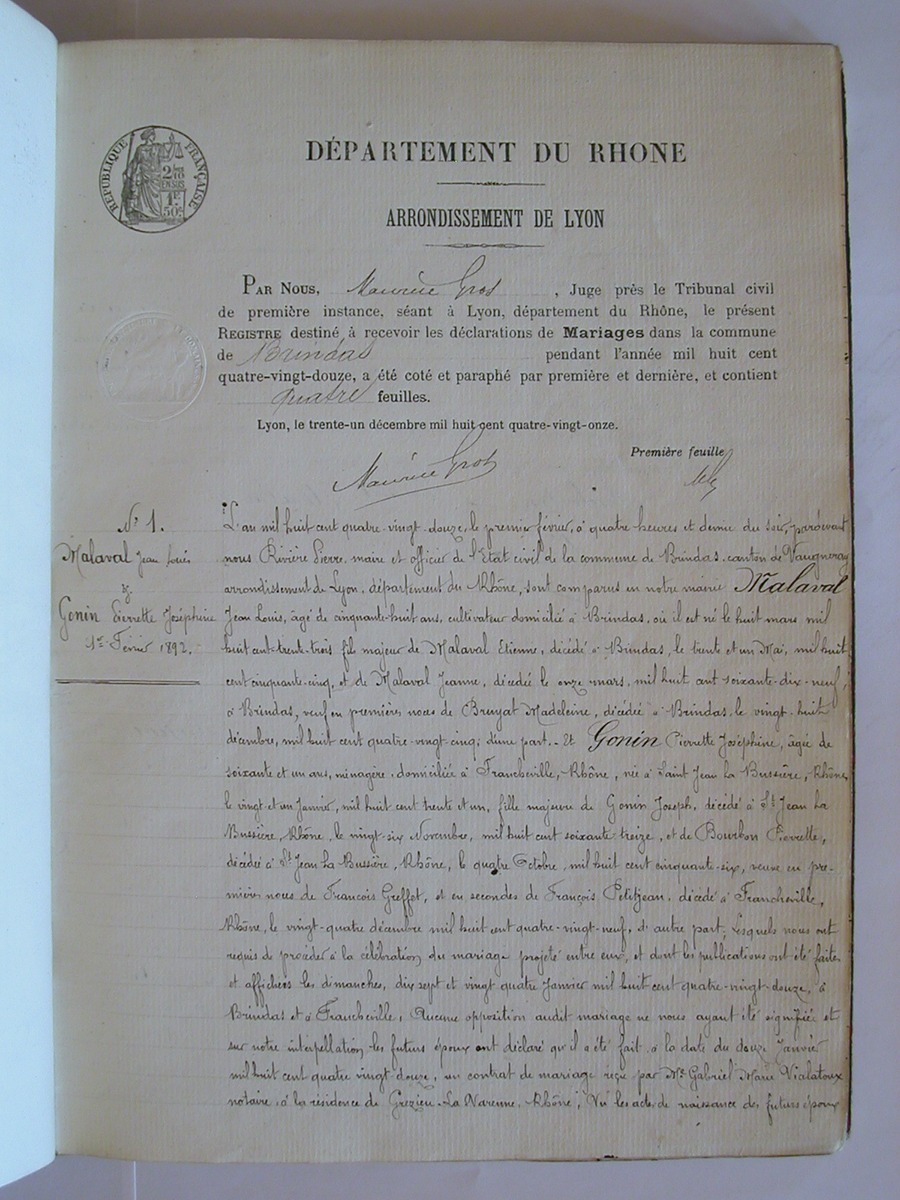 RÉPUBLIQUE FRANÇAISE
2
EN SUS
1F
50c
DÉPARTEMENT DU RHONE
ARRONDISSEMENT DE LYON
PAR NOUS, Maurice Gros, Juge près le Tribunal civil
de première instance, séant à Lyon, département du Rhône, le présent
REGISTRE destiné à recevoir les déclarations de Mariages dans la commune
de Brindas pendant l'année mil huit cent
quatre-vingt-douze, a été coté et paraphé par première et dernière, et contient
quatre feuilles.
Lyon, le trente-un décembre mil huit cent quatre-vingt-onze.
Première feuille
Maurice Gros
N° 1.
Malaval Jean Louis
&
Gonin Pierrette Joséphine
1er Février 1892.
L'an mil huit cent quatre-vingt-douze, le premier février, à quatre heures et demie du soir, pardevant
nous Rivière Pierre, maire et officier de l'Etat civil de la commune de Brindas, canton de Vaugneray
arrondissement de Lyon, département du Rhône, sont comparus en notre mairie Malaval
Jean Louis, âgé de cinquante-huit ans, cultivateur domicilié à Brindas, où il est né le huit mars mil
huit cent-trente-trois, fils majeur de Malaval Etienne, décédé à Brindas, le trente et un Mai, mil huit
cent cinquante-cinq, et de Malaval Jeanne, décédée le onze mars, mil huit cent soixante-dix-neuf,
à Brindas, veuf en premières noces de Bruyat Madeleine, décédée à Brindas, le vingt-huit
décembre, mil huit cent quatre-vingt-cinq; d'une part. - Et Gonin Pierrette Joséphine, âgée de
soixante et un ans, ménagère, domiciliée à Francheville, Rhône, née à Saint Jean La Bussière, Rhône,
le vingt et un Janvier, mil huit cent trente et un, fille majeure de Gonin Joseph, décédé à St Jean La
Bussière, Rhône, le vingt-six Novembre, mil huit cent soixante treize, et de Bourbon Pierrette,
décédée à St Jean La Bussière, Rhône, le quatre Octobre, mil huit cent cinquante-six, veuve en pre-
mières noces de François Greffet, et en secondes de François Petitjean, décédé à Francheville,
Rhône, le vingt-quatre décembre mil huit cent quatre-vingt-neuf, d'autre part, lesquels nous ont
requis de procéder à la célébration du mariage projeté entre eux, et dont les publications ont été faites
et affichées les dimanches, dix sept et vingt quatre Janvier mil huit cent quatre-vingt-douze, à
Brindas et à Francheville; Aucune opposition audit mariage ne nous ayant été signifiée et
sur notre interpellation les futurs époux ont déclaré qu'il a été fait, à la date du douze Janvier
mil huit cent quatre vingt-douze, un contrat de mariage reçu par Me Gabriel Marie Vialatoux
notaire, à la résidence de Grézieu-La Varenne, Rhône; Vu les actes de naissance des futurs époux